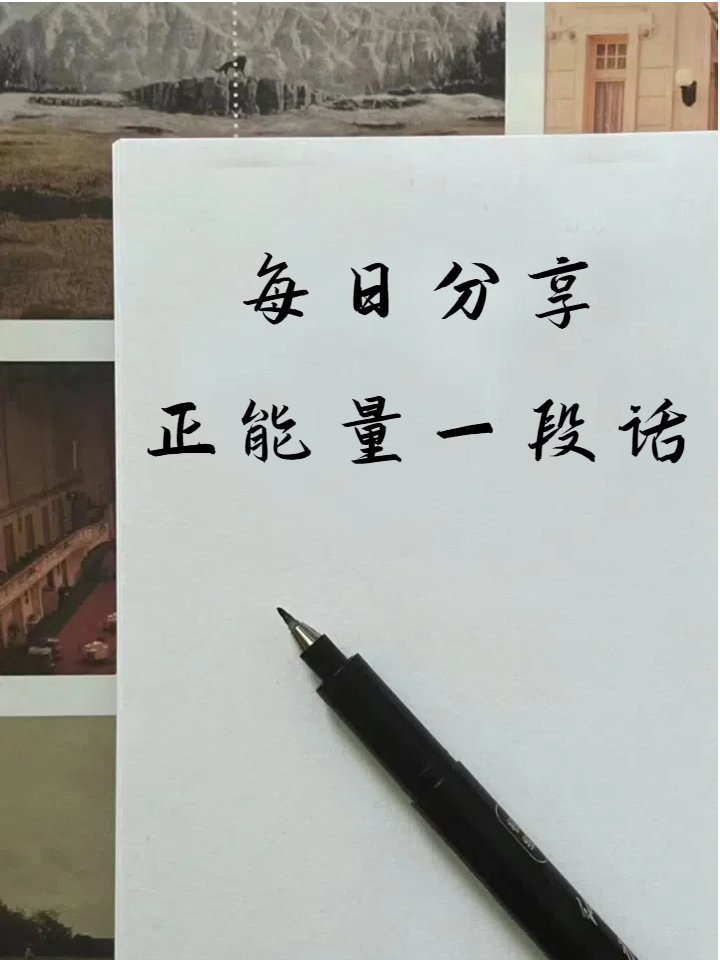 每日分享
正能量一段话